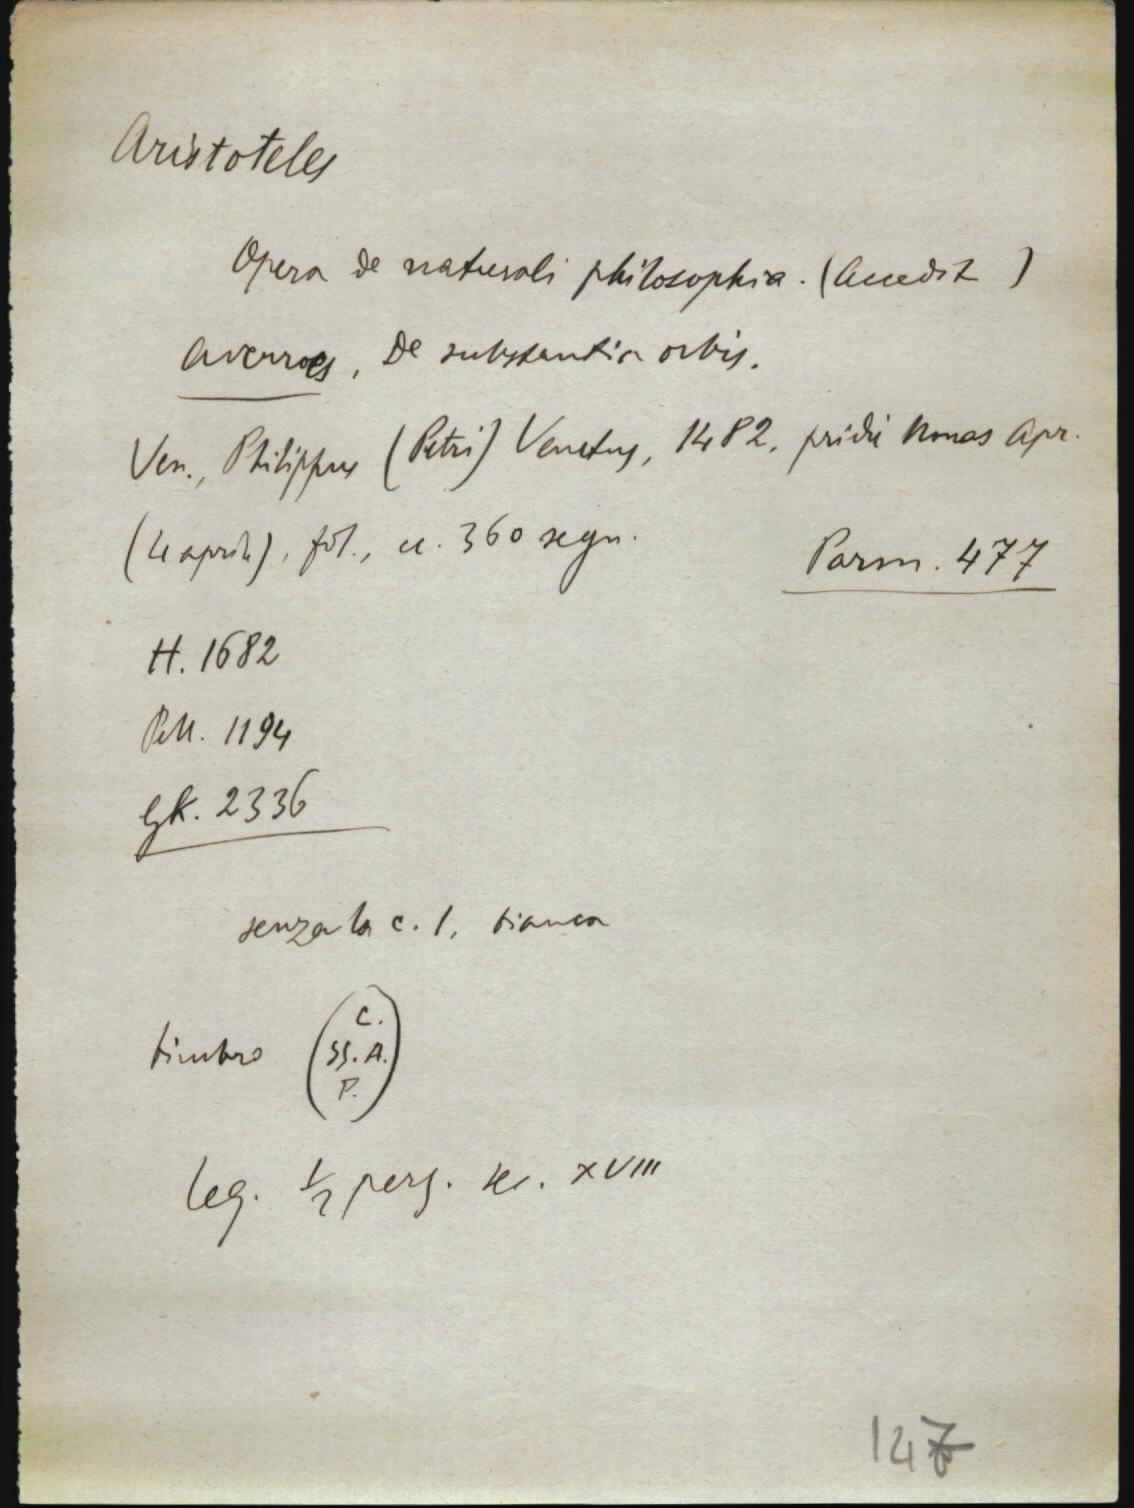 Aristoteles
Opera de naturali philosophia. (Accedit )
Averroes, De substantia orbis.
Ven., Philippus (Petri) Venetus, 1482, pridie Nonas Apr.
(4 aprile), fol., cc. 360 segn.
Parm. 477
H. 1682
Pell. 1194
GK. 2336
senza la c. 1, bianca
timbro (C. SS. A. P.)
Leg. 1/2 perg. sec. XVIII